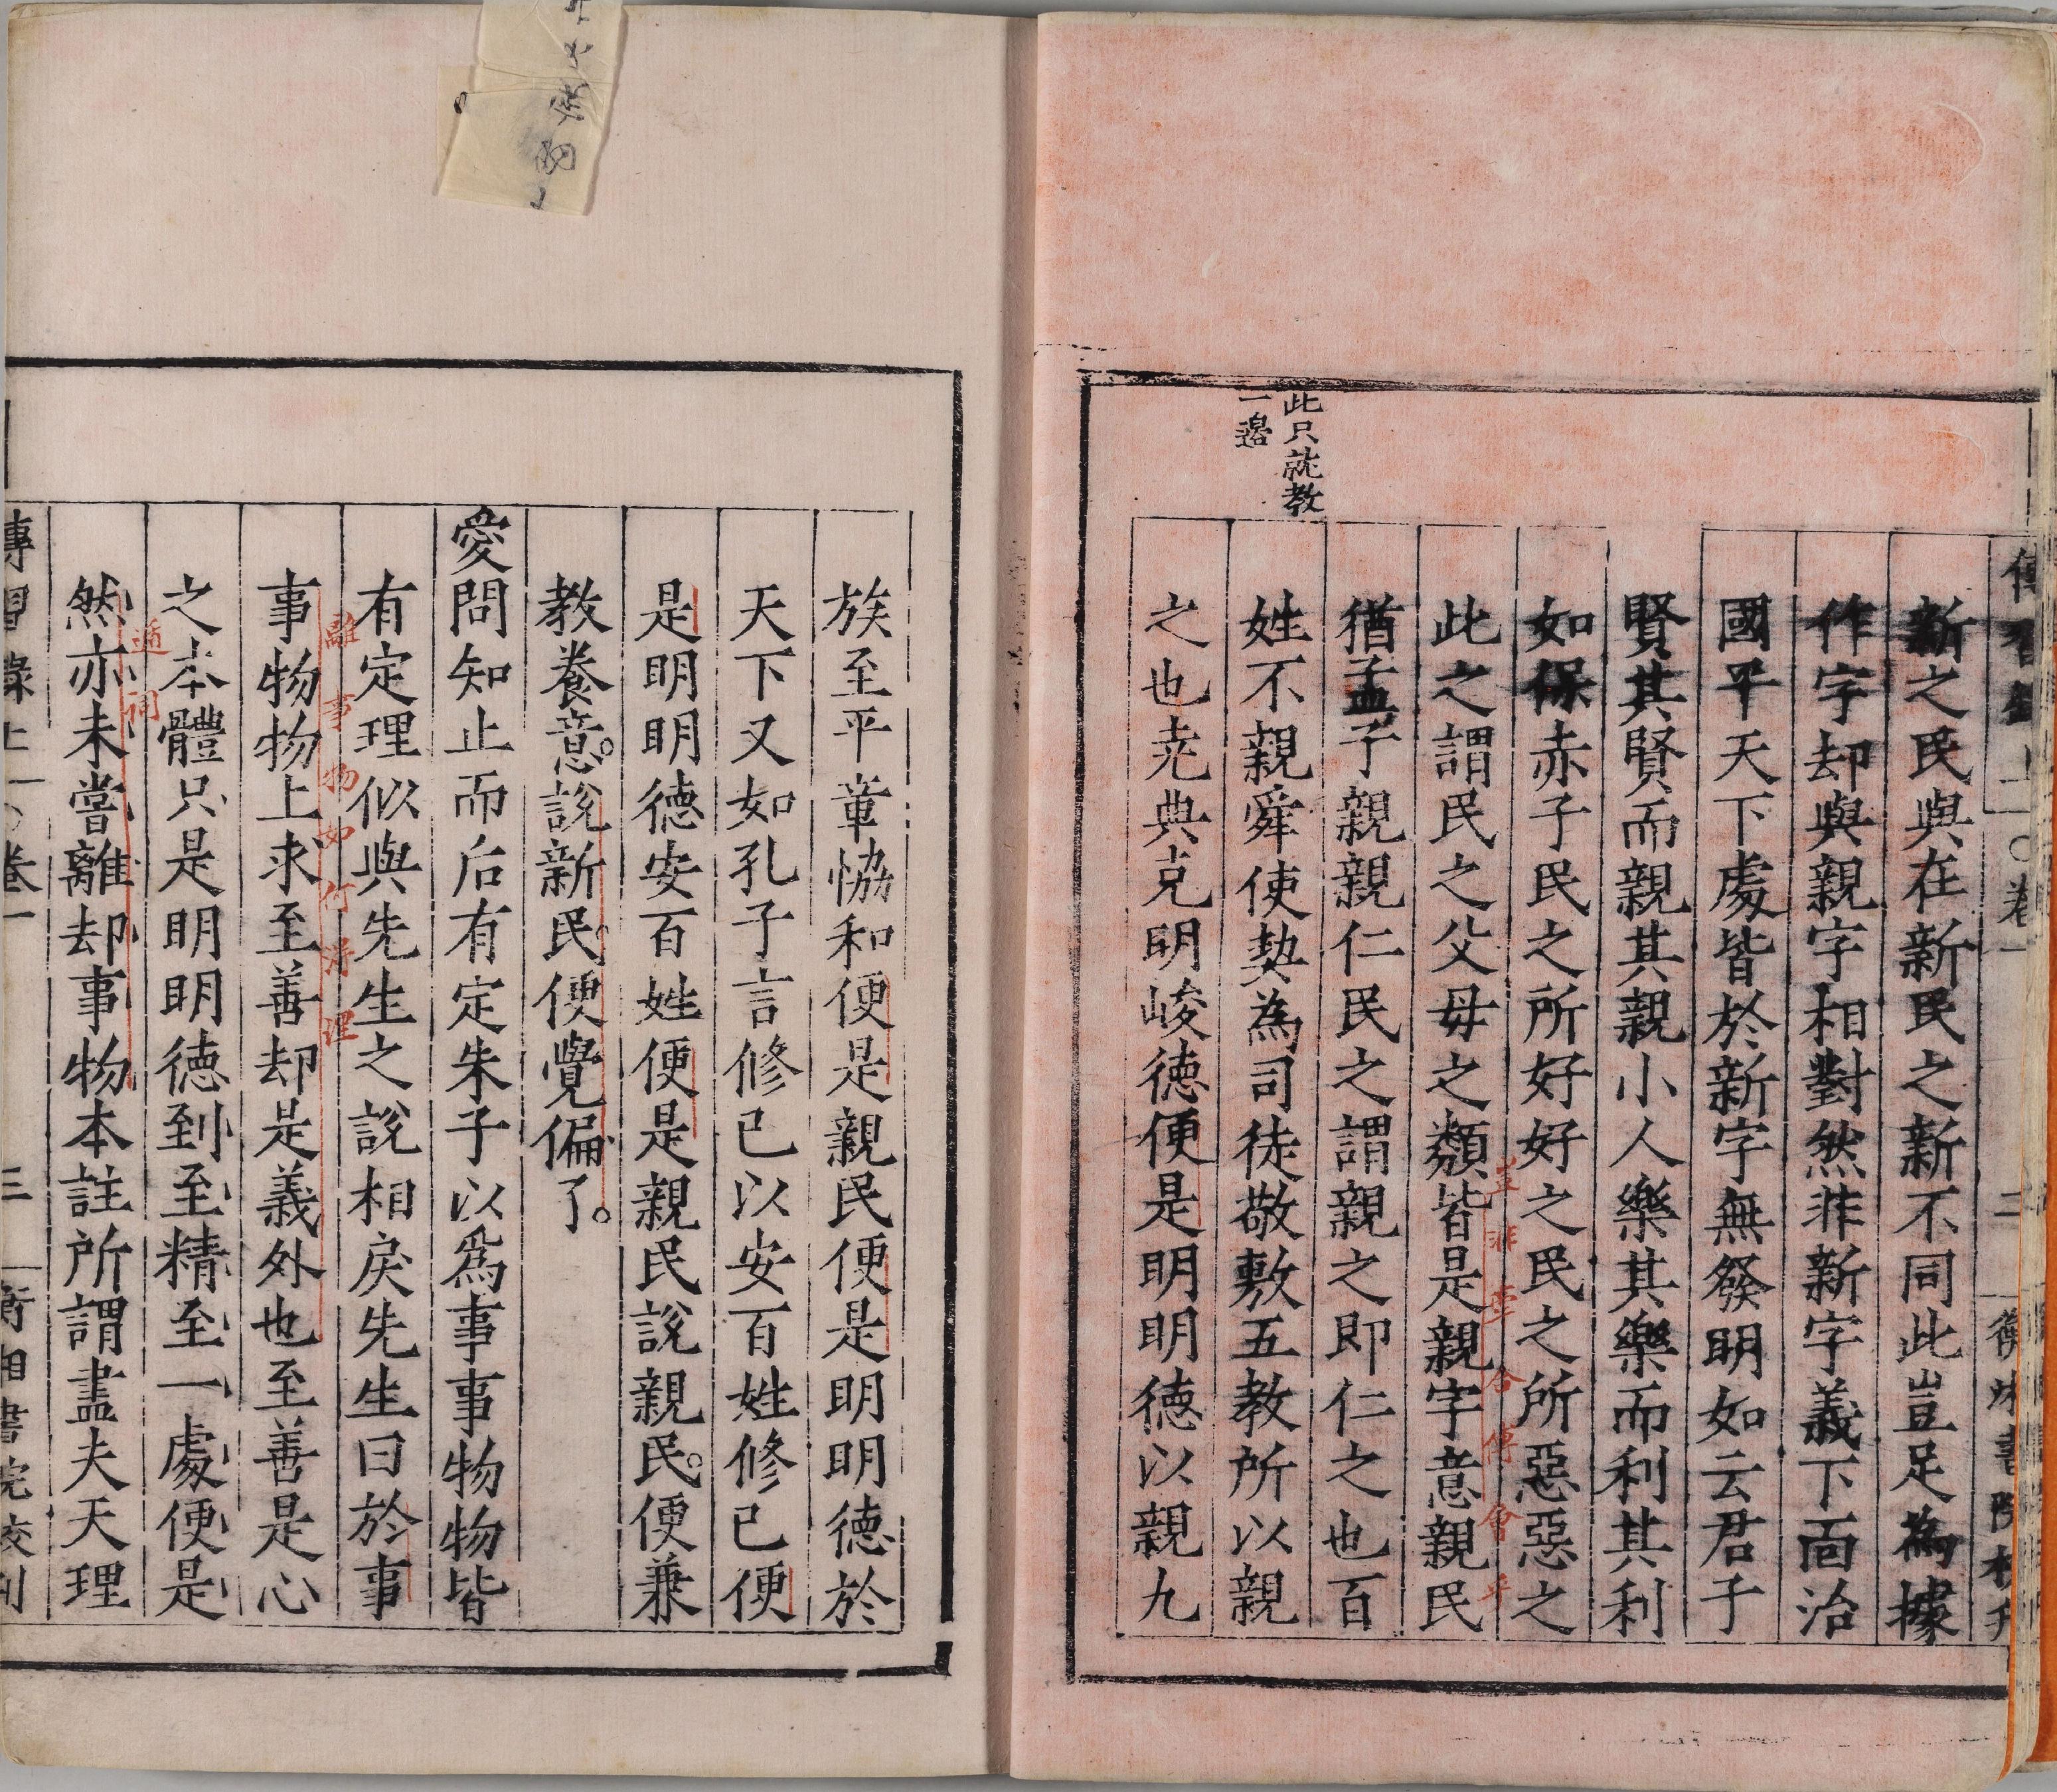 傳習錄上 〇卷一 二 衡湘書院校刊
新之民與在新民之新不同此豈足為據
作字却與親字相對然非新字義下面治
國平天下處皆於新字無發明如云君子
賢其賢而親其親小人樂其樂而利其利
如保赤子民之所好好之民之所惡惡之
此之謂民之父母之類皆是親字意親民
猶孟子親親仁民之謂親之即仁之也百
姓不親舜使契為司徒敬敷五教所以親
之也尭典克明峻徳便是明明徳以親九
此只就教
一邊
族至平章恊和便是親民便是明明徳於
天下又如孔子言修己以安百姓修己便
是明明徳安百姓便是親民說親民便兼
教養意說新民便覺偏了
愛問知止而后有定朱子以爲事事物物皆
有定理似與先生之說相戾先生曰於事
事物物上求至善却是義外也至善是心
之本體只是明明徳到至精至一處便是
然亦未嘗離却事物本註所謂盡夫天理
離事物如何得理
遁詞
傳習錄上 〇卷一 三 衡湘書院校刊